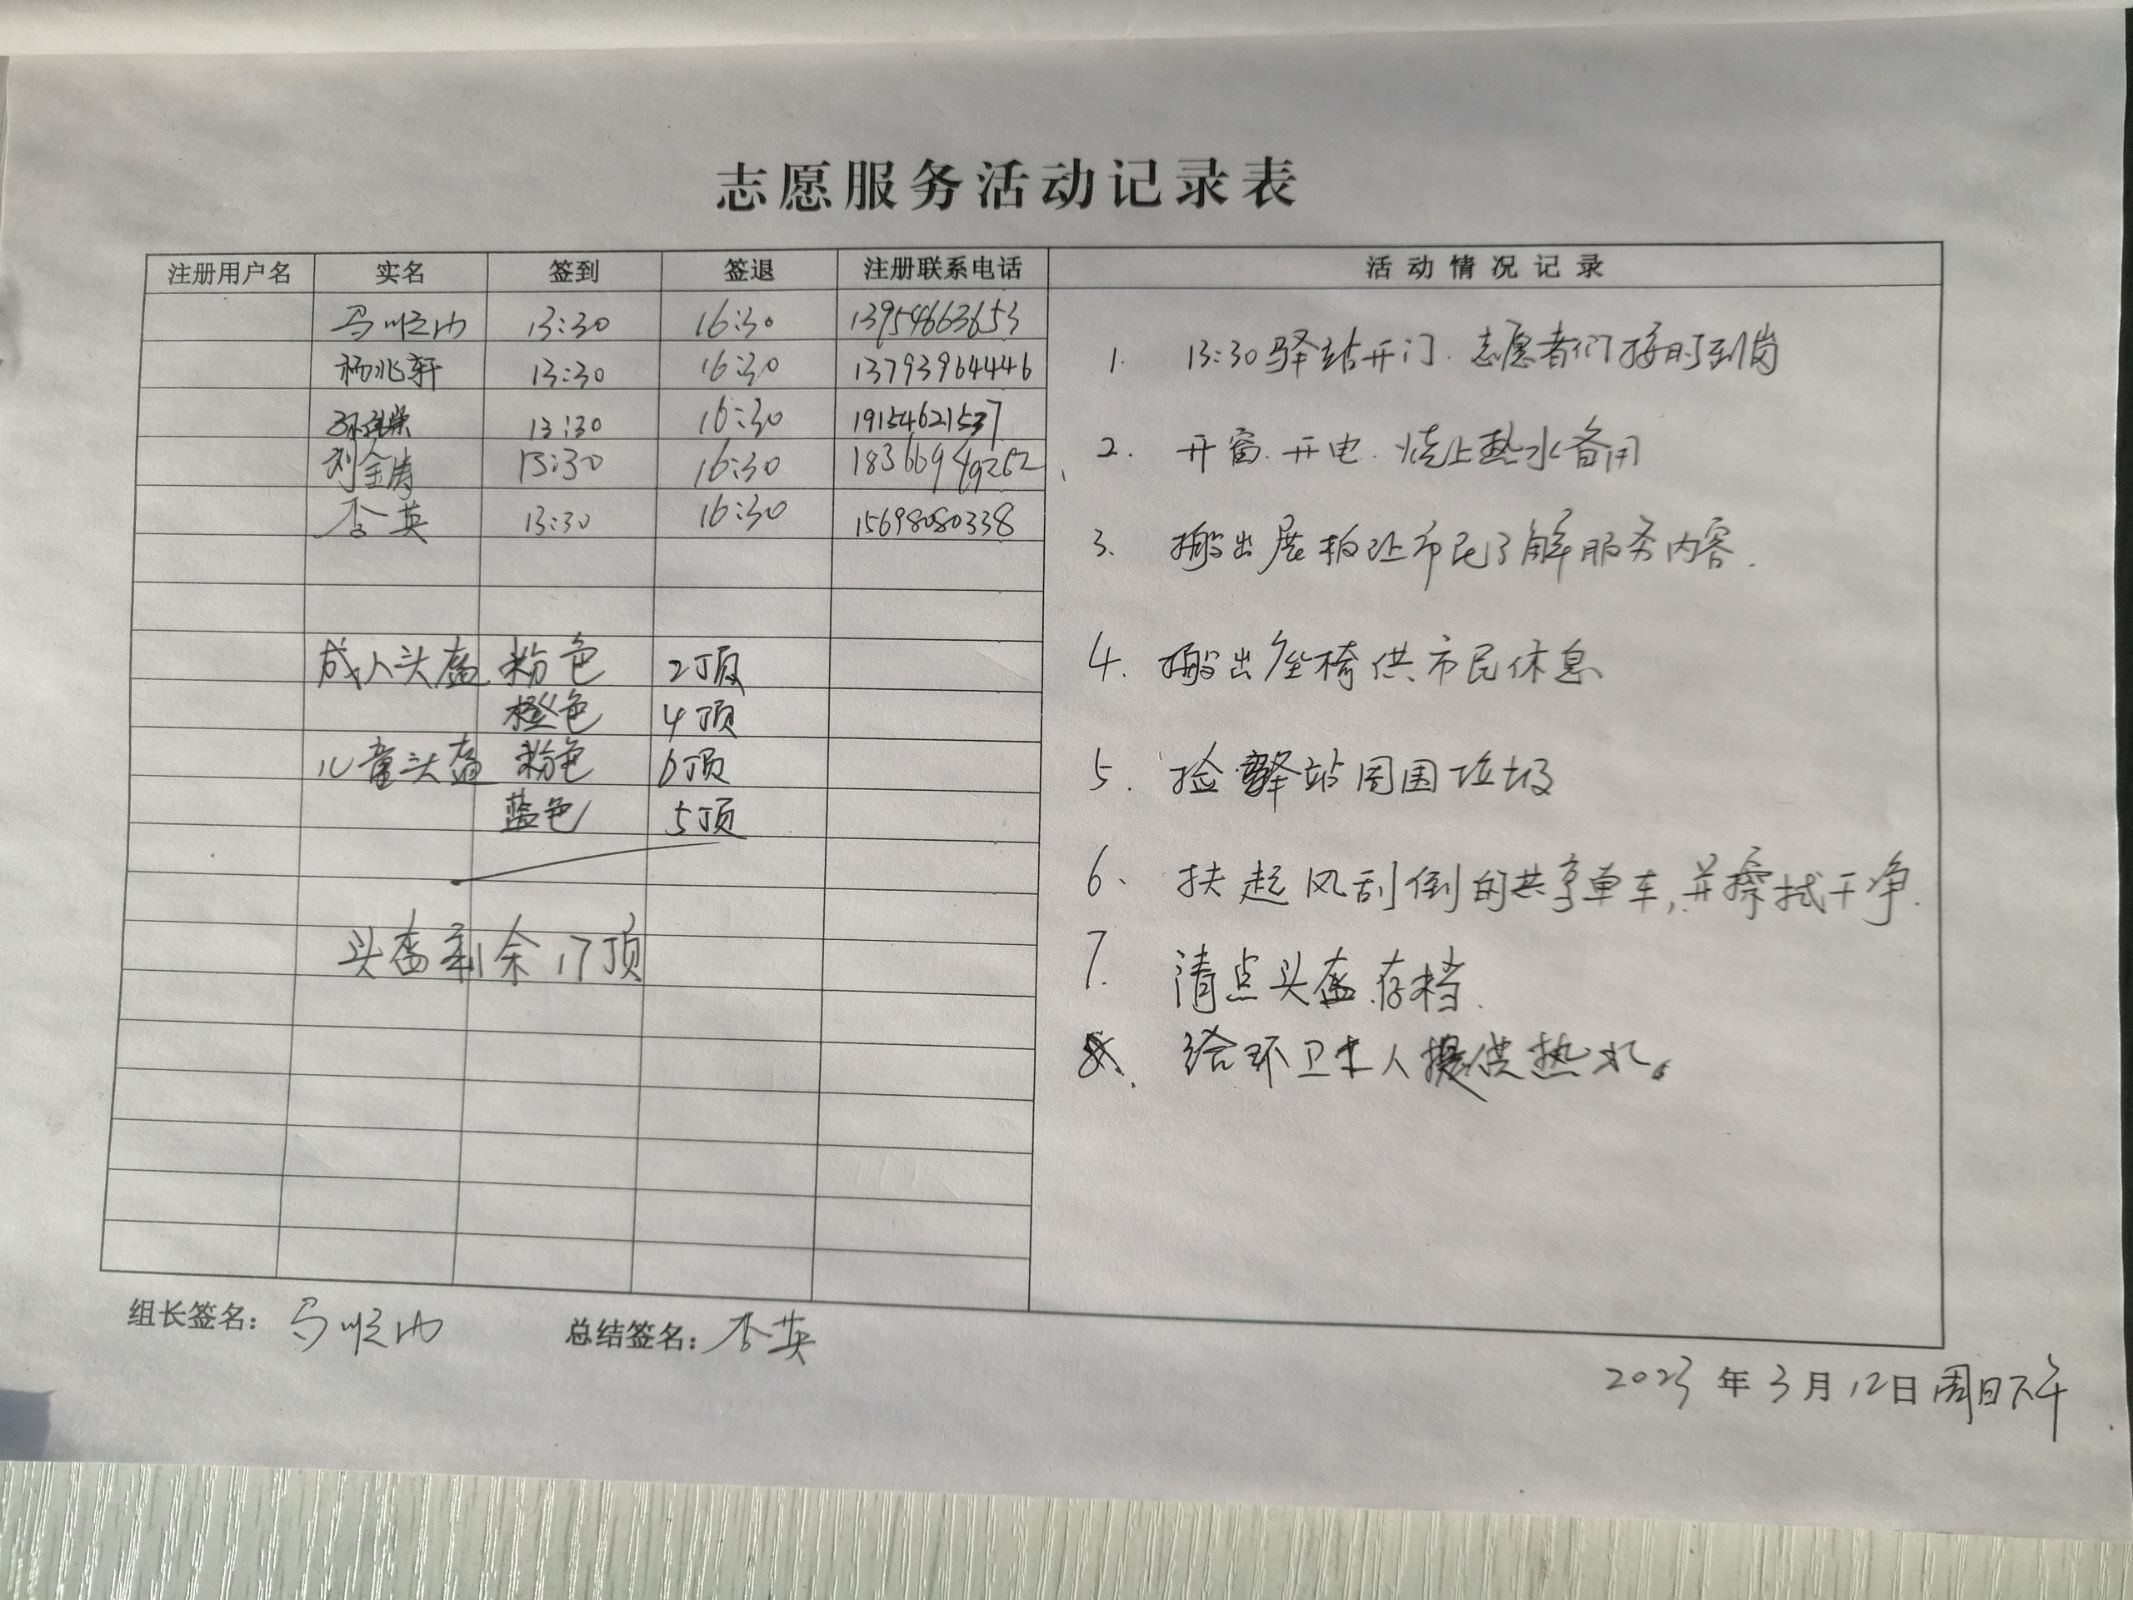 志愿服务活动记录表
注册用户名 实名 签到 签退 注册联系电话 活动情况记录
马顺山 13:30 16:30 13954663653
杨兆轩 13:30 16:30 13793964446
13:30 16:30 19154621537
刘金涛 13:30 16:30 18366949262
李英 13:30 16:30 15698080338
成人头盔 粉色 2顶
橙色 4顶
儿童头盔 粉色 6顶
蓝色 5顶
头盔剩余17顶
1. 13:30驿站开门.志愿者们按时到岗
2. 开窗.开电.烧上热水备用
3. 搬出展柏让市民了解服务内容.
4. 搬出座椅供市民休息
5. 捡驿站周围垃圾
6. 扶起风刮倒的共享单车,并擦拭干净.
7. 清点头盔.存档.
8. 给环卫工人提供热水。
组长签名: 马顺山 总结签名: 李英
2023年3月12日周日下午